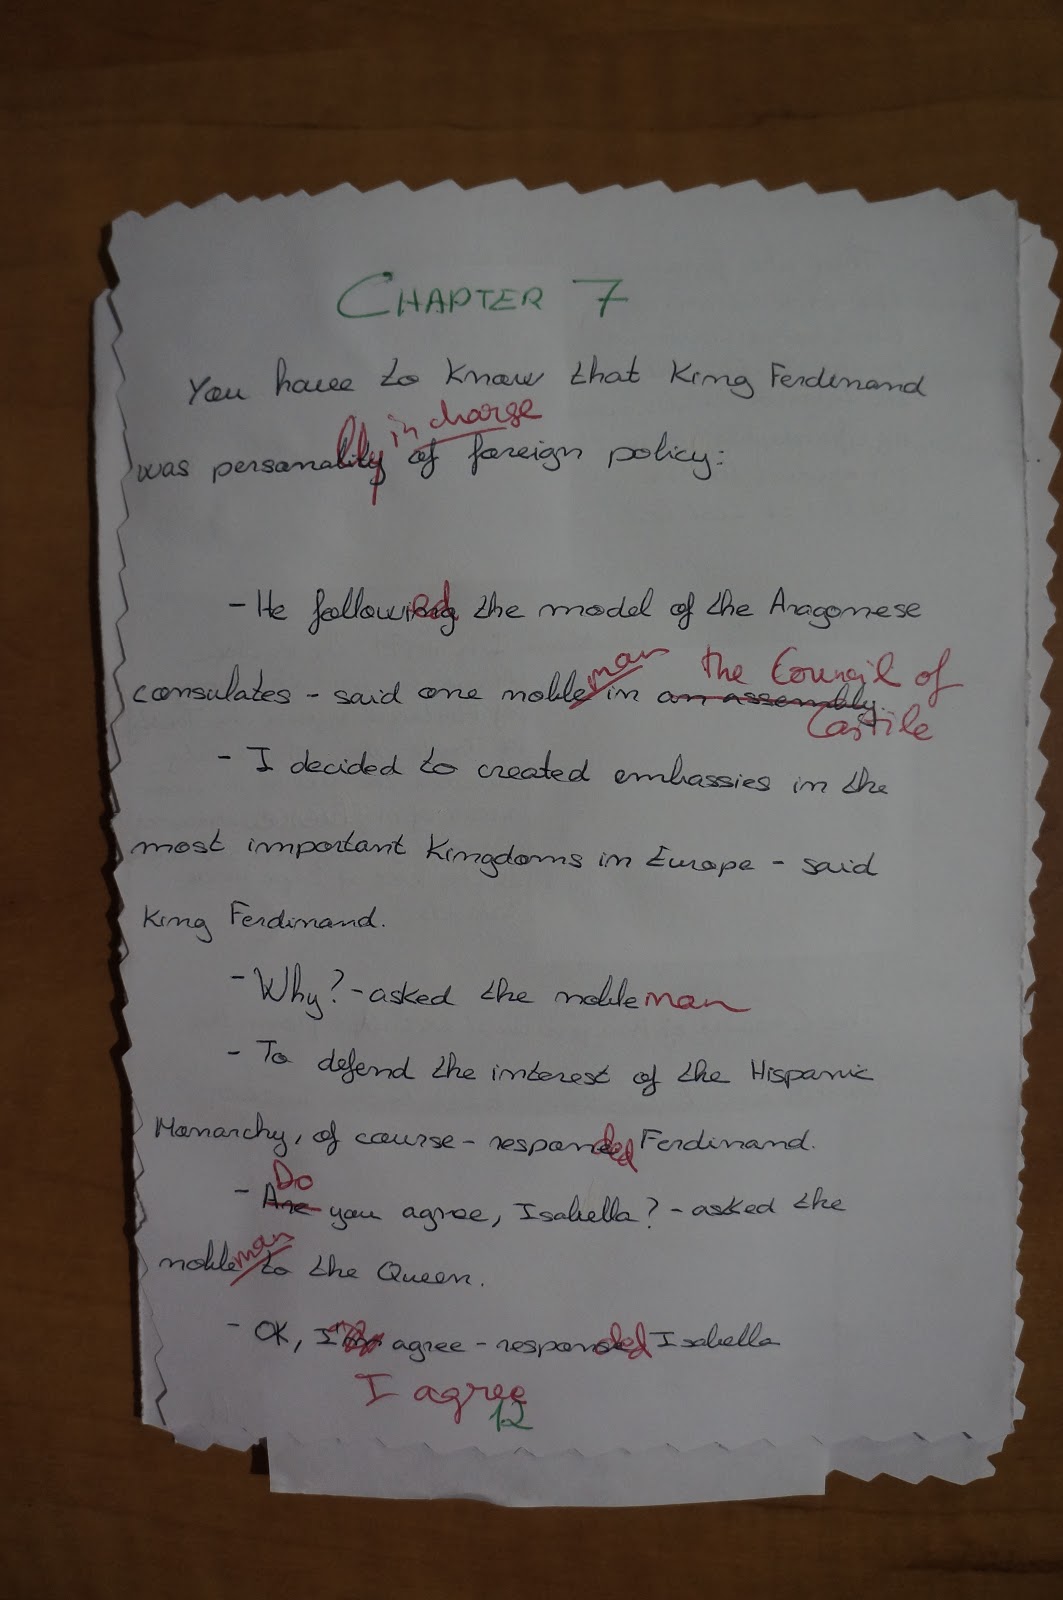 CHAPTER 7
You have to know that King Ferdinand
in charge
was personally of foreign policy:
- He followed the model of the Aragonese
man the Council of
consulates - said one noble in an assembly.
Castile
- I decided to created embassies in the
most important Kingdoms in Europe - said
King Ferdinand.
- Why? - asked the nobleman
- To defend the interest of the Hispanic
Monarchy, of course - responded Ferdinand.
Do
- Are you agree, Isabella? - asked the
man
noble to the Queen.
- OK, I'm agree - responded Isabella
I agree
12